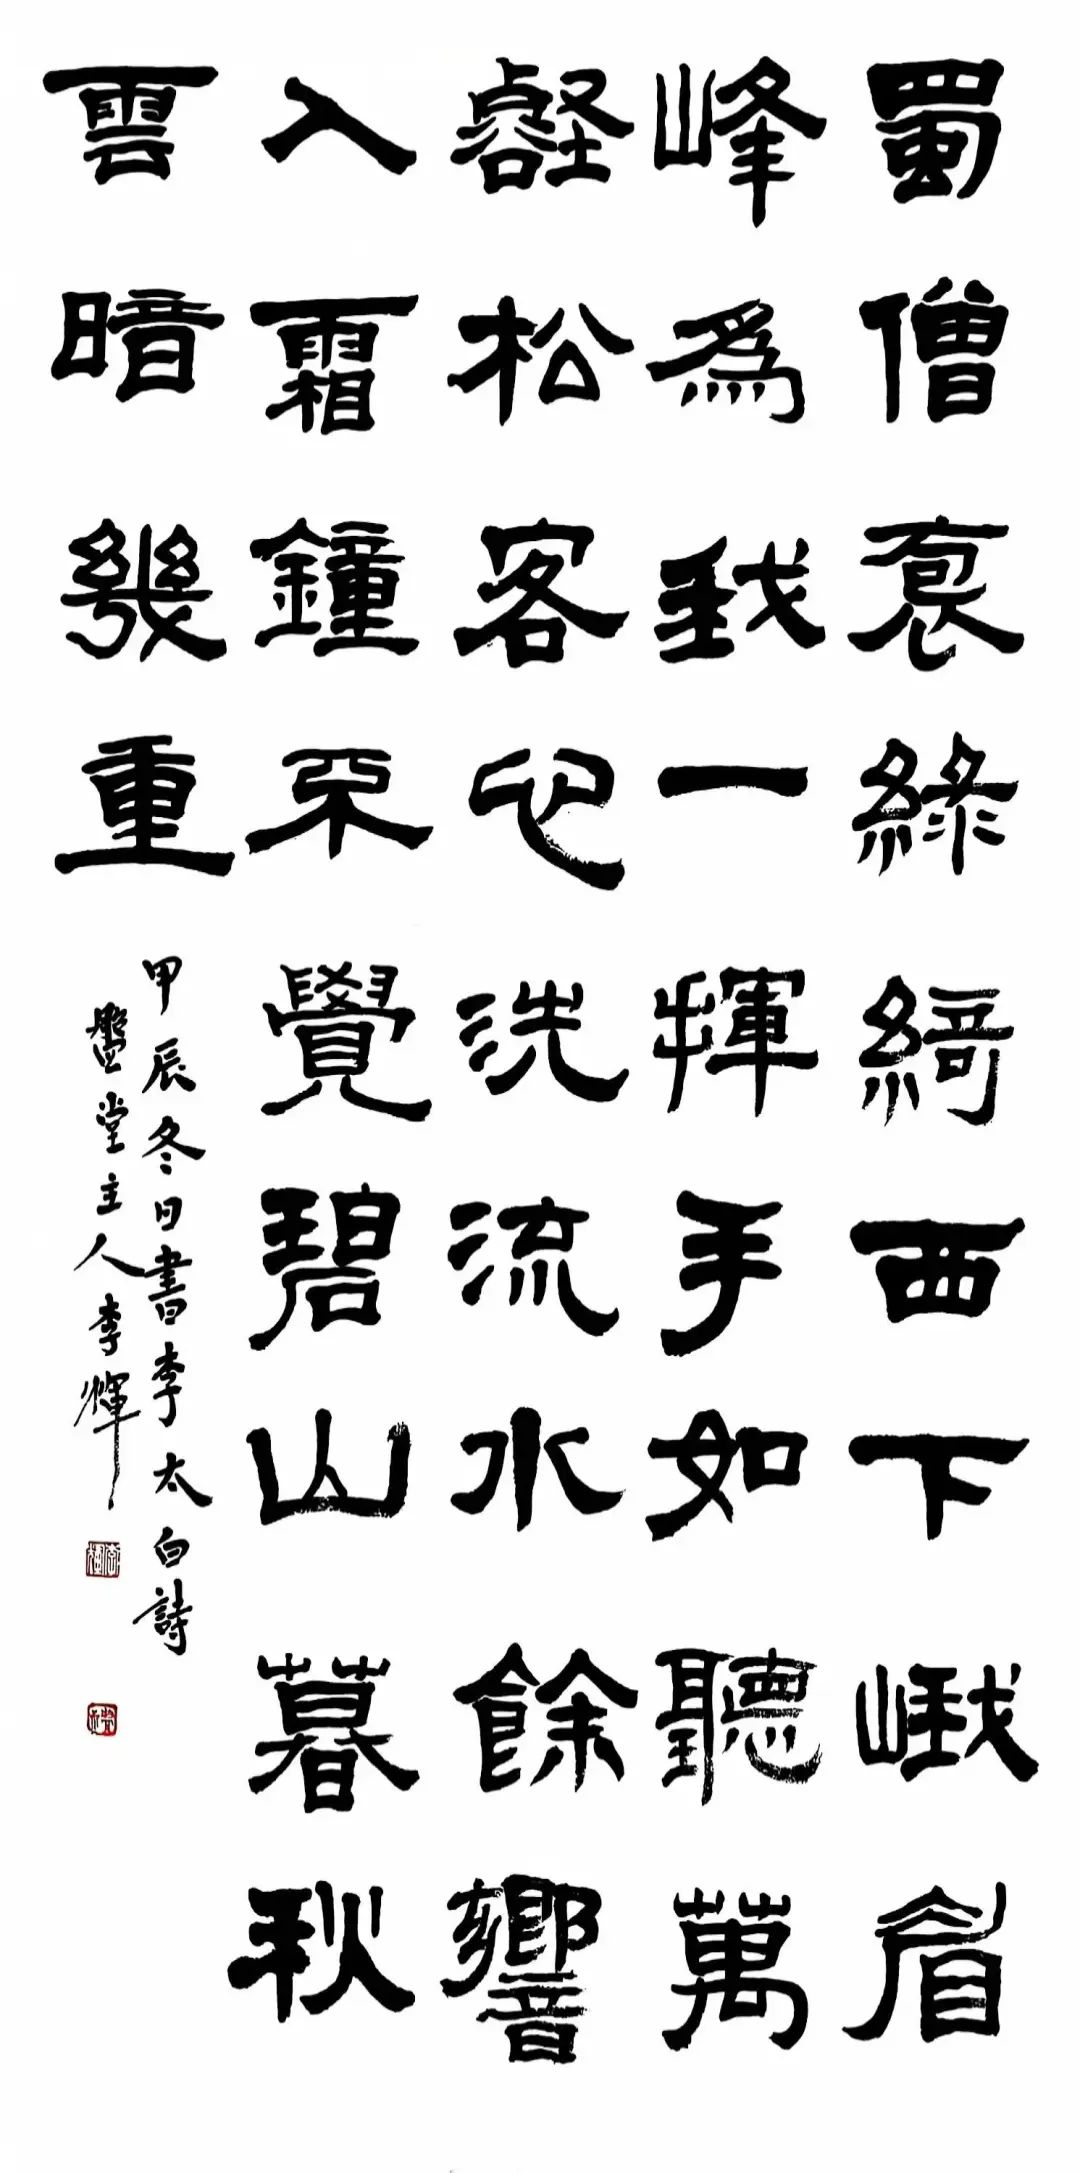 蜀僧袌綠綺西下峨眉
峰爲我一揮手如聽萬
壑松客心洗流水餘響
入霜鐘不覺碧山暮秋
雲暗幾重
甲辰冬日書李太白詩
盤堂主人李輝